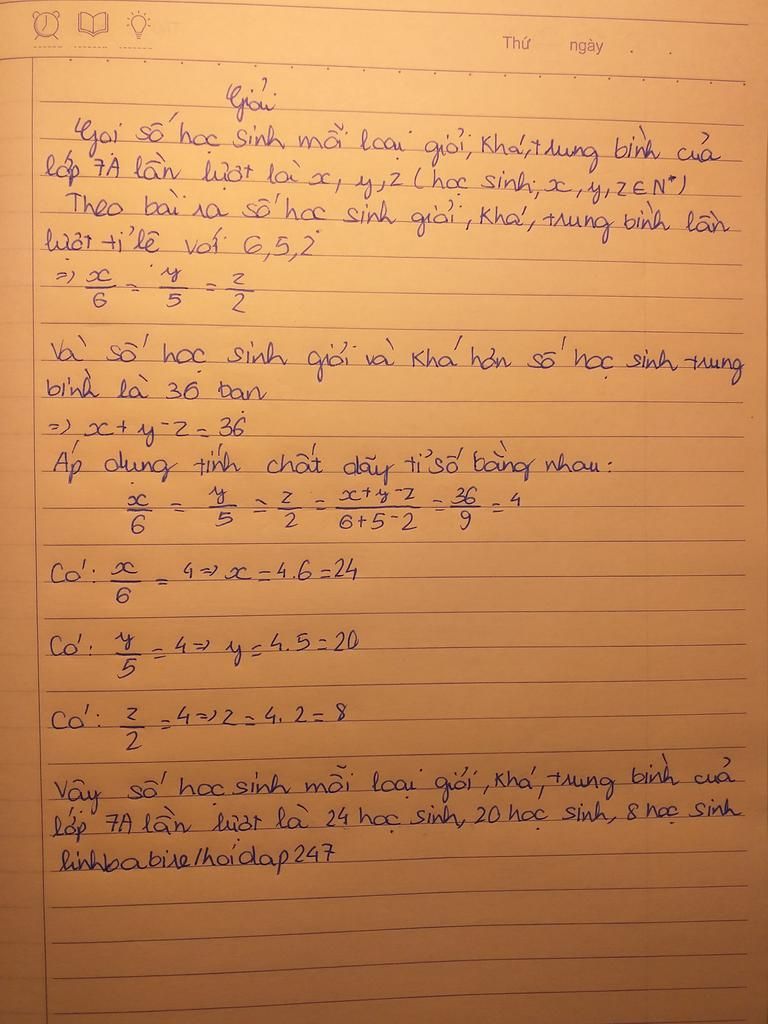 Thứ ngày . .
Giải
Gọi số học sinh mỗi loại giỏi, khá, trung bình của
lớp 7A lần lượt là x, y, z (học sinh; x, y, z ∈ N*)
Theo bài ra số học sinh giỏi, khá, trung bình lần
lượt tỉ lệ với 6, 5, 2
=> x/6 = y/5 = z/2
Và số học sinh giỏi và khá hơn số học sinh trung
bình là 36 bạn
=> x + y - z = 36
Áp dụng tính chất dãy tỉ số bằng nhau:
x/6 = y/5 = z/2 = (x+y-z)/(6+5-2) = 36/9 = 4
Có: x/6 = 4 => x = 4.6 = 24
Có: y/5 = 4 => y = 4.5 = 20
Có: z/2 = 4 => z = 4.2 = 8
Vậy số học sinh mỗi loại giỏi, khá, trung bình của
lớp 7A lần lượt là 24 học sinh, 20 học sinh, 8 học sinh
/hoidap247